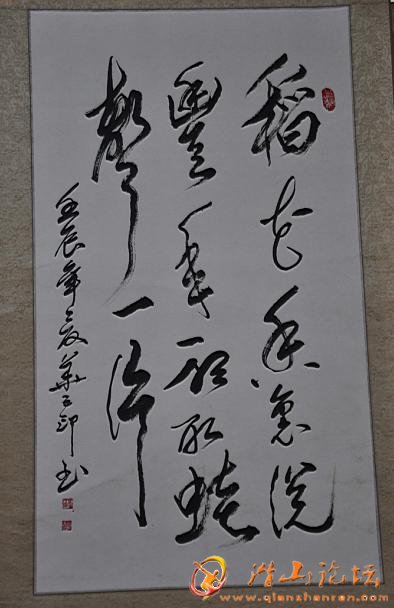 稻花香里说
豐年听取蛙
声一片
壬辰年之夏葉
印书
潜山论坛
www.qianshanren.com